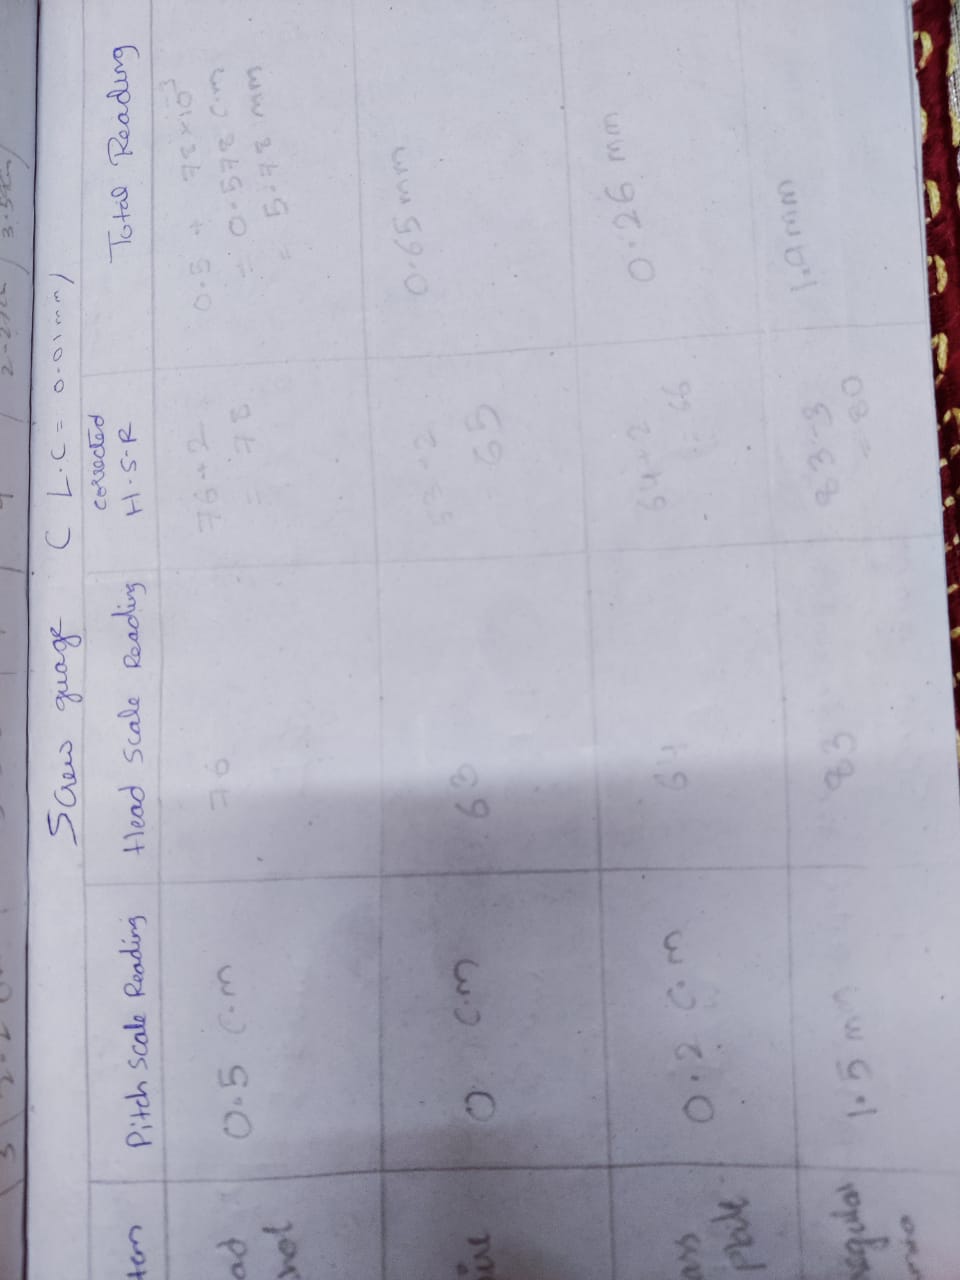 Screw guage ( L.C = 0.01mm)
Pitch Scale Reading Head Scale Reading corrected H.S.R Total Reading
0.5 c.m 76 76+2 0.5 + 78×10⁻³
= 78 = 0.578 c.m
= 5.78 mm
0 cm 63 +2 0.65mm
65
plate 0.2 c.m 64 64+2 0.26 mm
= 66
1.5 mm 83 83-3
= 80